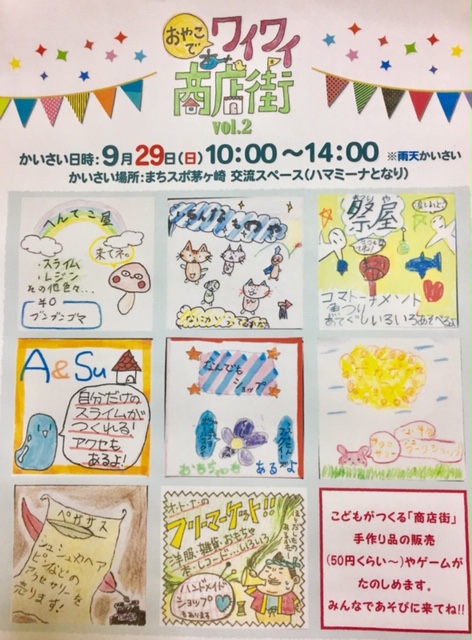 おやこで
ワイワイ
商店街
vol.2
かいさい日時:9月29日(日)10:00〜14:00 ※雨天かいさい
かいさい場所:まちスポ茅ヶ崎 交流スペース(ハマミーナとなり)
へんてこ屋
来てネ。
・スライム
・レジン
その他色々…
¥0
ブンブンゴマ
祭屋
コマトーナメント
A&Su
自分だけの
スライムが
つくれる!
アクセも
あるよ!
なんでも
ショップ
おもちゃも
あるよ
ペガサス
シュシュやヘア
ピンなどの
アクセサリーを
売ります!
フリーマーケット!!
洋服・雑貨・おもちゃ
本・レコード…いろいろ
ハンドメイド
ショップ
も
あります
こどもがつくる「商店街」
手作り品の販売
(50円くらい〜)やゲームが
たのしめます。
みんなであそびに来てね!